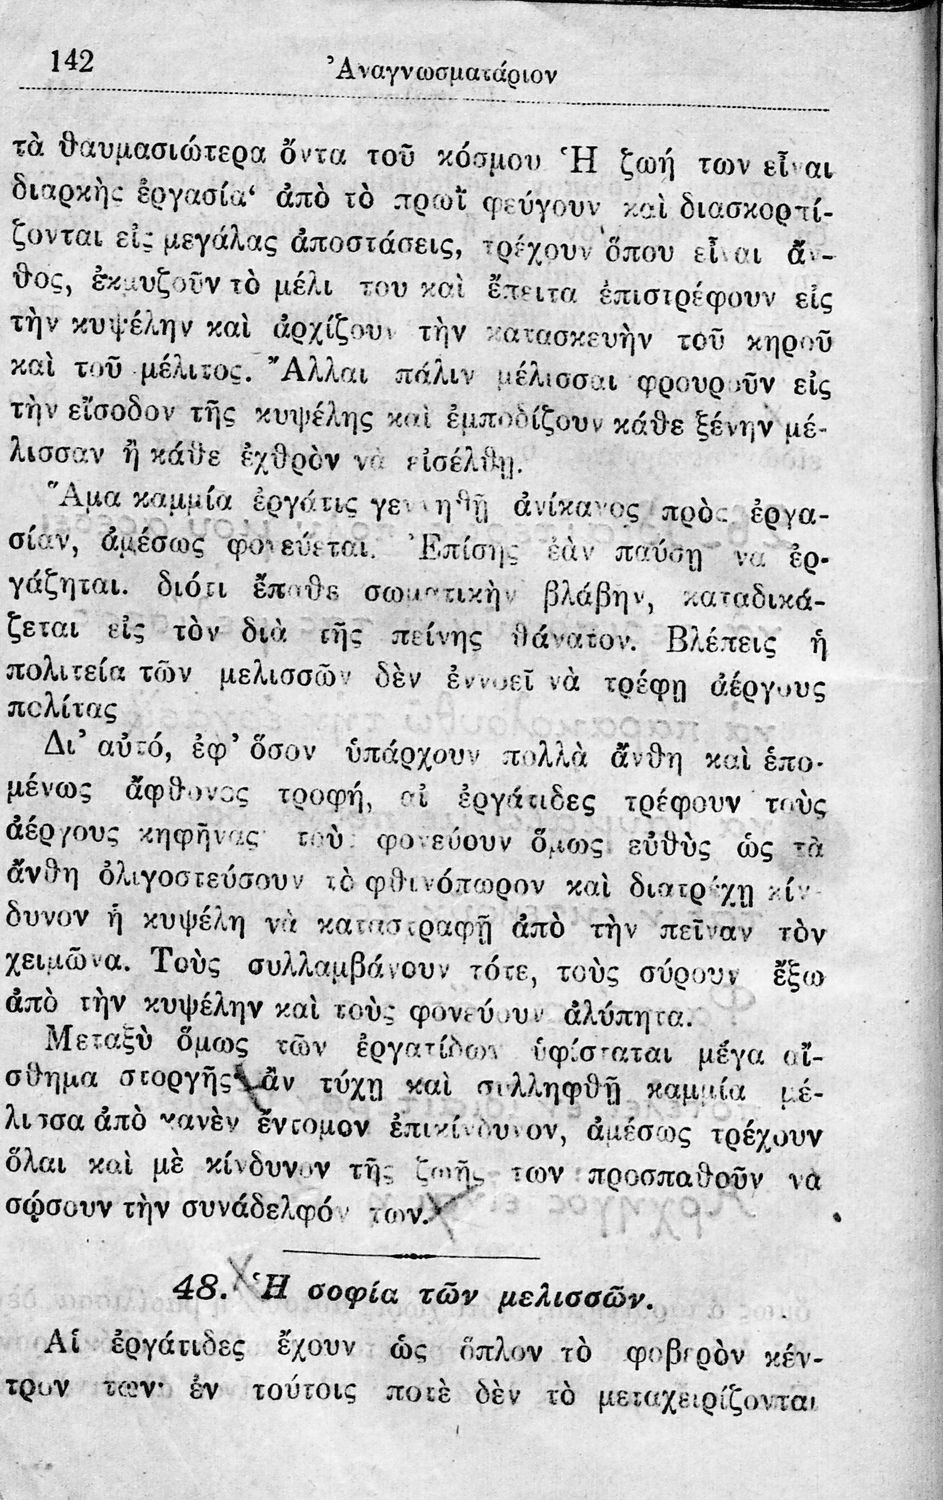 142
Ἀναγνωσματάριον
τὰ θαυμασιώτερα ὄντα τοῦ κόσμου Ἡ ζωή των εἶναι
διαρκὴς ἐργασία· ἀπὸ τὸ πρωῒ φεύγουν καὶ διασκορπί-
ζονται εἰς μεγάλας ἀποστάσεις, τρέχουν ὅπου εἶναι ἄν-
θος, ἐκμυζοῦν τὸ μέλι του καὶ ἔπειτα ἐπιστρέφουν εἰς
τὴν κυψέλην καὶ ἀρχίζουν τὴν κατασκευὴν τοῦ κηροῦ
καὶ τοῦ μέλιτος. Ἄλλαι πάλιν μέλισσαι φρουροῦν εἰς
τὴν εἴσοδον τῆς κυψέλης καὶ ἐμποδίζουν κάθε ξένην μέ-
λισσαν ἢ κάθε ἐχθρὸν νὰ εἰσέλθῃ.
Ἅμα καμμία ἐργάτις γεννηθῇ ἀνίκανος πρὸς ἐργα-
σίαν, ἀμέσως φονεύεται. Ἐπίσης ἐὰν παύσῃ να ἐρ-
γάζηται. διότι ἔπαθε σωματικὴν βλάβην, καταδικά-
ζεται εἰς τὸν διὰ τῆς πείνης θάνατον. Βλέπεις ἡ
πολιτεία τῶν μελισσῶν δὲν ἐννοεῖ νὰ τρέφῃ ἀέργους
πολίτας
Δι’ αὐτό, ἐφ’ ὅσον ὑπάρχουν πολλὰ ἄνθη καὶ ἑπο-
μένως ἄφθονος τροφή, αἱ ἐργάτιδες τρέφουν τοὺς
ἀέργους κηφῆνας· τοὺς φονεύουν ὅμως εὐθὺς ὡς τὰ
ἄνθη ὀλιγοστεύσουν τὸ φθινόπωρον καὶ διατρέχῃ κίν-
δυνον ἡ κυψέλη νὰ καταστραφῇ ἀπὸ τὴν πεῖναν τὸν
χειμῶνα. Τοὺς συλλαμβάνουν τότε, τοὺς σύρουν ἔξω
ἀπὸ τὴν κυψέλην καὶ τοὺς φονεύουν ἀλύπητα.
Μεταξὺ ὅμως τῶν ἐργατίδων ὑφίσταται μέγα αἴ-
σθημα στοργῆς· ἂν τύχῃ καὶ συλληφθῇ καμμία μέ-
λισσα ἀπὸ κανὲν ἔντομον ἐπικίνδυνον, ἀμέσως τρέχουν
ὅλαι καὶ μὲ κίνδυνον τῆς ζωῆς των προσπαθοῦν νὰ
σῴσουν τὴν συνάδελφόν των.
48. Ἡ σοφία τῶν μελισσῶν.
Αἱ ἐργάτιδες ἔχουν ὡς ὅπλον τὸ φοβερὸν κέν-
τρον των· ἐν τούτοις ποτὲ δὲν τὸ μεταχειρίζονται